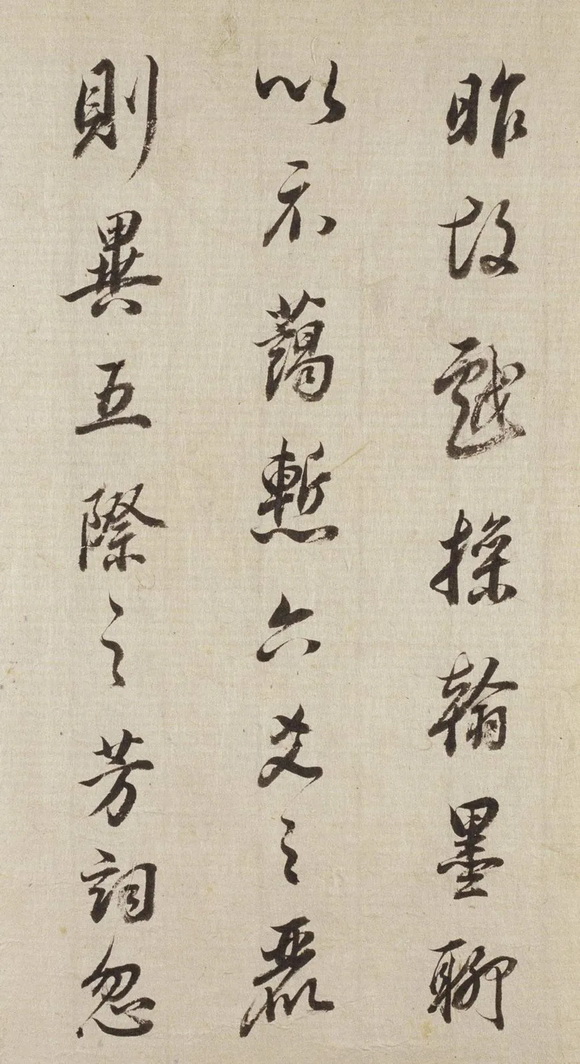 昨故戲操翰墨聊
以示藹慙六爻之麗
則異五際之芳詞忽